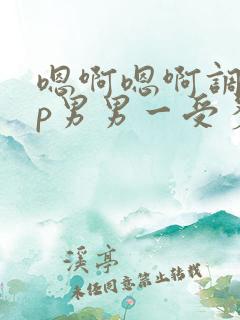 嗯啊嗯啊調
p男男一受
溪亭
未经同意禁止转载